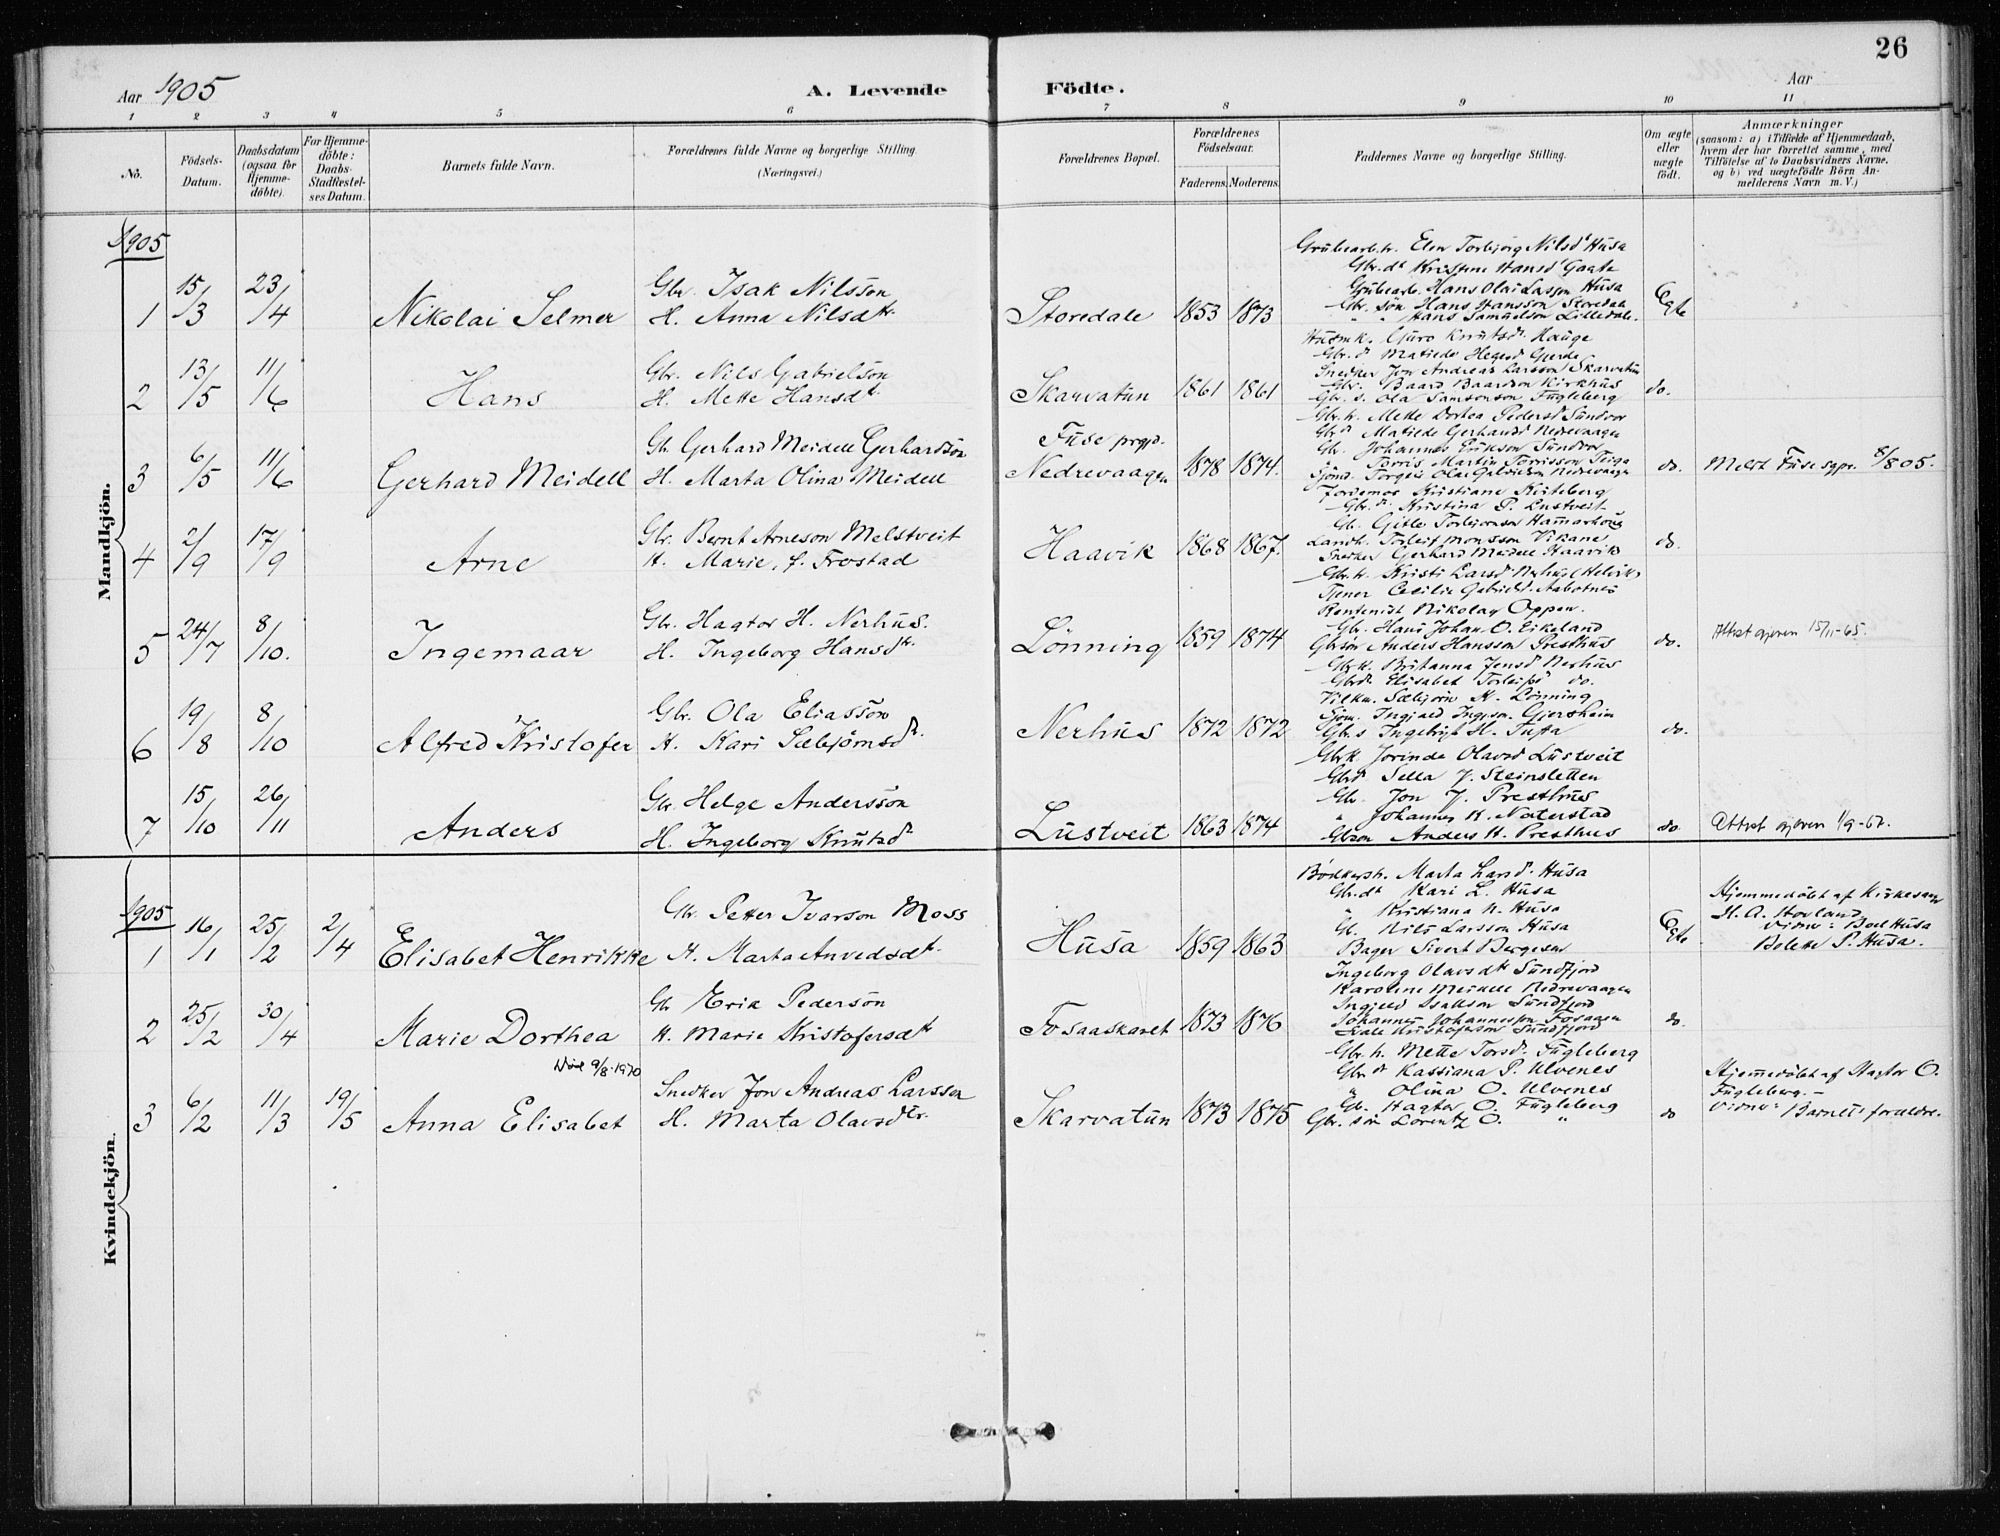 26
Aar 1905 A. Levende Födte. Aar
1 2 3 4 5 6 7 8 9 10 11
No.
Födsels-Datum.
Daabsdatum (ogsaa for Hjemme-döbte).
For Hjemme-döbte: Daabs-Stadfæstel-ses Datum.
Barnets fulde Navn.
Forældrenes fulde Navne og borgerlige Stilling. (Næringsvei.)
Forældrenes Bopæl.
Forældrenes Födselsaar.
Faderens. Moderens.
Faddernes Navne og borgerlige Stilling.
Om ægte eller uægte födt.
Anmærkninger
(saasom: a) i Tilfælde af Hjemmedaab, hvem der har forrettet samme, med Tilföielse af to Daabsvidners Navne, og b) ved uægtefödte Börn An-melderens Navn m. V.)
Mandkjön.
1905
1 15/3 23/4 Nikolai Selmer
Gbr. Isak Nilsson
H. Anna Nilsdtr.
Storedale 1853 1873
Grubearb. h. Elen Torbjörg Nilsdt Husa
Gbr. dt Kristine Hansdt Gaate
Grubearb. Hans Olai Larsson Husa
Gbr. sön Hans Hansson Storedale
" " Hans Samuelson Lilledale.
Egte
2 13/5 11/6 Hans
Gbr. Nils Gabrielson
H. Mette Hansdtr.
Skarvatun 1861 1861
Husmk. Guro Knutsdr. Hauge
Gbr. d. Matilde Gjerde
Snedker Jon Andreas Larsson Skarvatun
Gbr. Baard Baardson Kirkhus
Gbr. s. Ola Samsonson Fugleberg
do.
3 6/5 11/6 Gerhard Meidell
Gb. Gerhard Meidell Gerhardsön
H. Marta Olina Meidell
Fuse prgjd.
Nedrevaagen 1878 1874.
Gbr. h. Mette Dortea Pedersd Sundvor
Gbr d Matilde Gerhardsd Nedrevaagen
Gbr. Johannes Erikson Sundvor
" Torris Martin Torrisson Teiga
Sjömd. Torgeis Olai Gabrielson Nedrevaagen
do. Meldt Fuse sgpr. 8/8 05.
4 2/9 17/9 Arne
Gbr. Bernt Arneson Melstveit
H. Marie, f. Frostad
Haavik 1868 1867.
Jordemor Kristiane Kviteberg
Gbr. d. Kristina P. Lustveit
Gb. Gitle Torbjörnson Hammarhoug
Landh. Torleif Monsson Vikane
Snedker Gerhard Meidell Haavik
do.
5 24/7 8/10. Ingemaar
Gbr. Hagtor H. Nerhus.
H. Ingeborg Hansdtr.
Lönning 1859 1874
Gbr. h. Kristi Larsd. Nerhus (Helvik)
Tjener Cecilie Gabrielsd. Aabotnes
Rentenist Nikolay Oppen.
Gbr. Hans Johan O. Eikeland
Gbrsön Anders Hansson Presthus
do. Attest gjeven 15/11-65.
6 19/8 8/10 Alfred Kristofer
Gbr. Ola Eliassön
H. Kari Sæbjörnsdr.
Nerhus 1872 1872
Gbr k. Britanna Jensd Nerhus
Gbrdr. Elisabet Torleifsd do.
Vilkm. Sæbjörn H. Lönning
Sjöm. Ingjald Gjersheim
Gbr. s Ingebrigt H. Tufta
do.
7 15/10 26/11 Anders
Gbr. Helge Anderssön
H. Ingeborg Knutsdr
Lustveit 1863 1874
Gbr k. Jorinda Olavsd Lustveit
Gbrd Sella J. Steinsletten
Gbr. Jon J. Presthus
" Johannes K. Naterstad
Gbrson Anders H. Presthus
do Attest gjeven 1/9-67.
Kvindekjön.
1905
1 16/1 25/2 2/4 Elisabet Henrikke
Gbr. Petter Ivarson Moss
H. Marta Anvedsdt.
Husa 1859 1863
Bödkersh. Marta Larsd. Husa
Gbr. dt Kari L. Husa
" Kristiana N. Husa
Gb. Nils Larsson Husa
Bager Sivert Bergesen
Egte
Hjemmedöbt af Kirkesanger
H. A. Hovland.
Vidner: Boel Husa
Bolette P. Husa.
2 25/2 30/4 Marie Dorthea
Gbr Erik Pedersön
H. Marie Kristofersdt
Fosaaskaret 1873 1876
Ingeborg Olavsdtr Sundfjord
Karoline Meidell Nedrevaagen
Ingjeld Isakson Sundfjord
Johannes Johannesson Fosaaen
Kristoferson Sundfjord
do.
Död 9/8-1970
3 6/2 11/3 19/5 Anna Elisabet
Snedker Jon Andreas Larsson
H. Marta Olavsdtr.
Skarvatun 1873 1875
Gbr. h. Mette Torsd. Fugleberg
Gbr. dt Kassiana P. Ulvenes
" Olina O. Ulvenes
Gb. Hagtor O. Fugleberg
Gbr. sön Lorentz O. "
do
Hjemmedöbt af Hagtor O.
Fugleberg. -
Vidner: Barnets forældre.